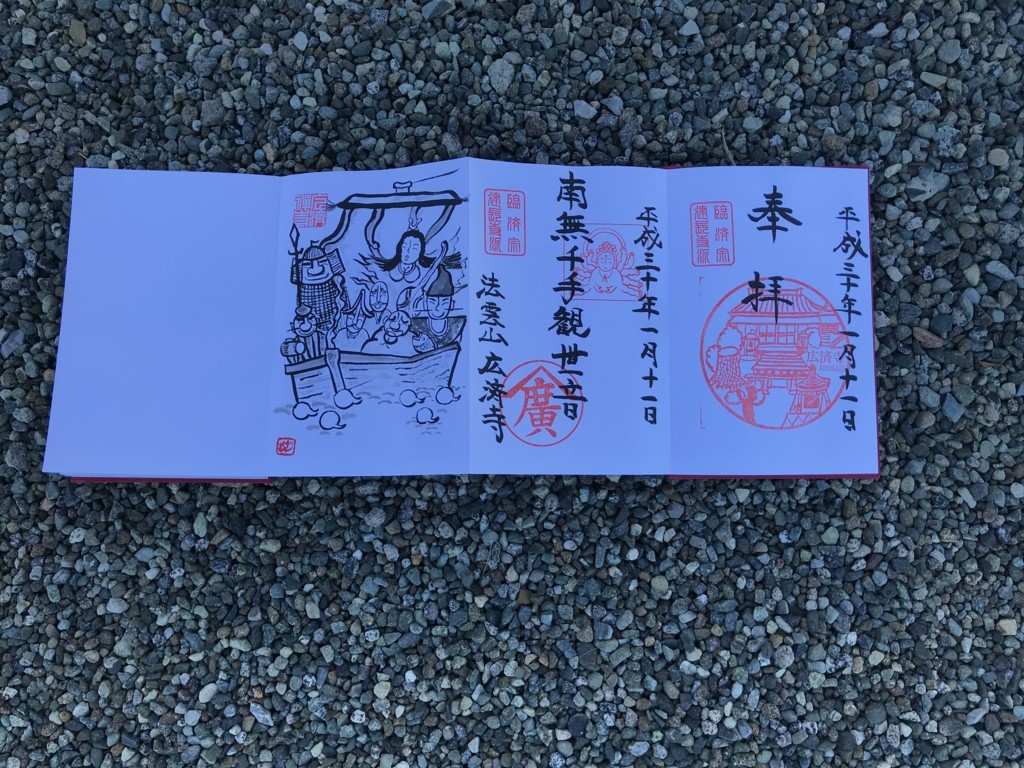 平成三十年一月十一日
奉拝
臨済宗
建長寺派
広済寺
平成三十年一月十一日
南無千手観世音
臨済宗
建長寺派
廣
法雲山広済寺